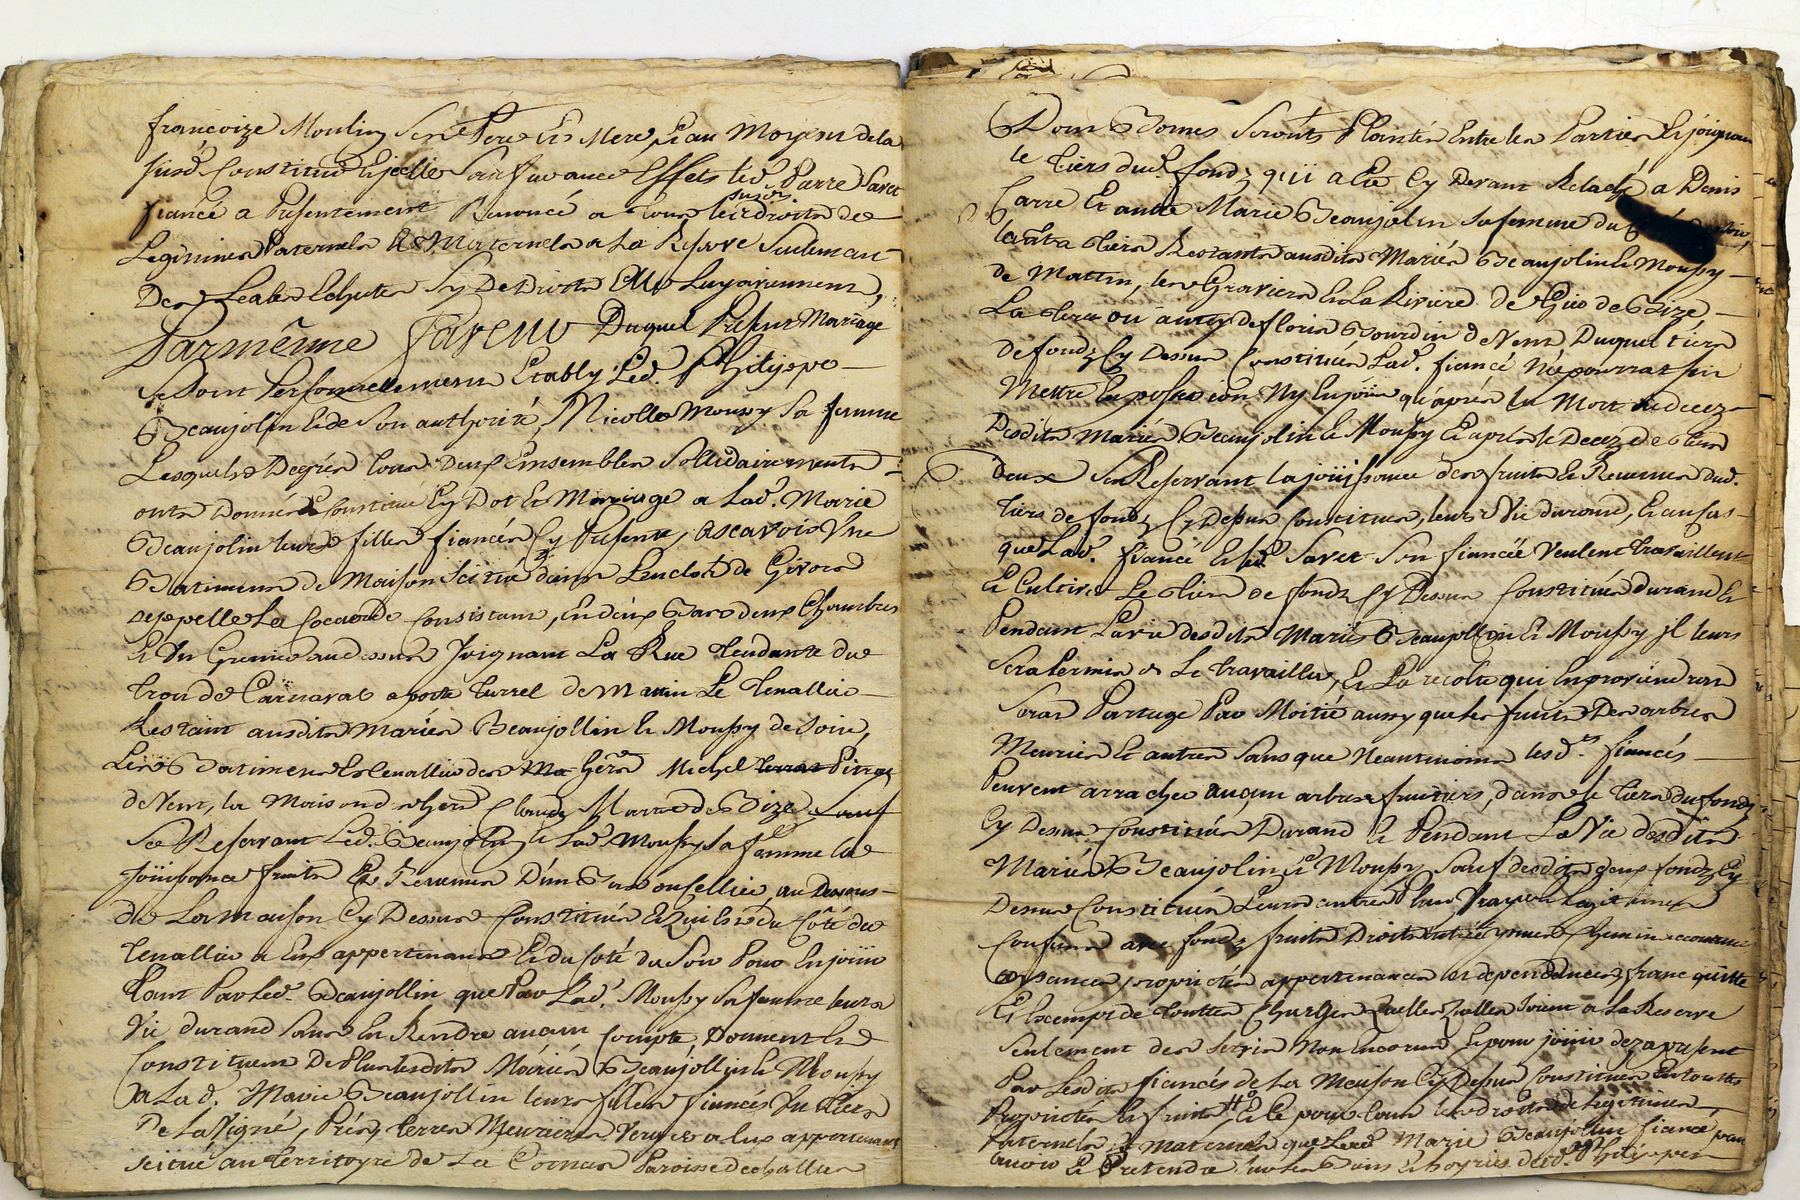 francoize Moulin Son Pere Et Mere, Et au Moyens de la
susd. Constitué Ejcelle Sauf avances Effets led. Pierre Savet
fiancé a Presentement Renoncé a Tous les susd. droits de
Legitimes Paternels & Maternels a La Reserve Seulement
Des Leales Echutes Sy De Droits Elles Luy aviennent,
Parmême faveur Duquel Present Mariage
Se Sont Personnellement Etably Led. Philippe
Beaujollin Et de Son authorité, Nicolle Moussy Sa femme
Lesquels De grés Tous Deux Ensembles Sollidairements
onts Donnés & Constitué En Dot Et Mariage a Lad. Marie
Beaujolin leurs filles fiancés Cy Presente, ascavoir Une
Batimens de Maison Scitué dans Lenclos de Givors
appellé La Cocarde Consistant, En deux Bas deux Chambres
Et Un Grenier au dessus Joignant La Rue Tendante du
Trou de Carnaval a porte Turrel de Matin Le Tenallier
Restant ausdits Mariés Beaujollin Et Moussy de Soir,
Les Batimens Et Tenallier des hers Michel Pitrat
de Vent, la Maison des hers Claude Marra de Bize Sauf
Se Reservant Led. Beaujollin Et Lad. Moussy Sa femme la
Jouissance fruits Et Revenus D'un Bas ou Cellier au dessous
de La Maison Cy Dessus Constitués Et qui Est du Côté du
Tenallier a Eux appertenant Et du Coté du Soir Pour En jouir
Tant Par Led. Beaujollin que Par Lad. Moussy Sa femme leurs
Vie durand Sans En Rendre aucun Compte, Donnent Et
Constituent De Plus lesdits Mariés Beaujollin Et Moussy
A Lad. Marie Beaujollin leurs filles fiancés Un Tiers
De La Vigne, Prés, Terres Meuriers Verger a Eux appertenant
scitué au Territoyre de La Cornas Paroisse dechallas
Dont Bornes Seronts Plantés Entre les Parties Et joignant
le Tiers dud. fondz qui a Eté Cy Devant Relaché a Denis
Carre Et autre Marie Beaujolin sa femme du
les Tiers Restants ausdits Mariés Beaujolin Et Moussy
de Mattin, les Graviers Et La Riviere de Gier de Bize
La terre de floris Bourdin de Vent Duquel tiers
de fondz Cy Dessus Constitués Lad. fiancé Ne pourrat Sen
Mettre En possession Ny En jouir qu'après la Mort
Desdits Mariés Beaujolin Et Moussy Et après le Decez de Tous
deux Sen Reservant la jouissance des fruits Et Revenus dud.
Tiers de fondz Cy Dessus Constitués, leurs Vie durand, Et au Cas
que Lad. fiancé Et led. Savet Son fiancée Veulent Travaillent
Et Cultiver Le Tiers de fondz Cy Dessus Constitués durand Et
Pendant La vie desdits Mariés Beaujollin Et Moussy Jl leurs
Sera Permis de Le Travailler, Et La récolte qui En proviendront
Seras Partagé Par Moitié aussy que les fruits Des arbres
Meuriers Et autres Sans que Neantmoins lesd. fiancés
Peuvent arracher aucun arbres fruitiers, dans le Tiers du fondz
Cy Dessus Constitués Durand Et Pendant La Vie desdits
Mariés Beaujolin Et Moussy Sauf desdits deux fondz Cy
Dessus Constitués Leurs autres Plus Vrays Et Legitimes
Confins avec fondz fruits Droits Entrées Chemin
aysances proprietés appertenances Et dependances, franc quitte
Et Exempt de Touttes Charges Quelles Quelles Soient a La Reserve
Seulement des Servis Non Encourus, Et pour jouir dez apresent
Par Lesdits fiancés de La Maison Cy Dessus Constitués En touttes
Proprietés Et fruits Et Ce pour Tous les droits de Legitimes
Paternels & Maternels que Lad. Marie Beaujolin fiancé peut
avoir Et Pretendre sur les Biens Et hoyries dud. Philippe